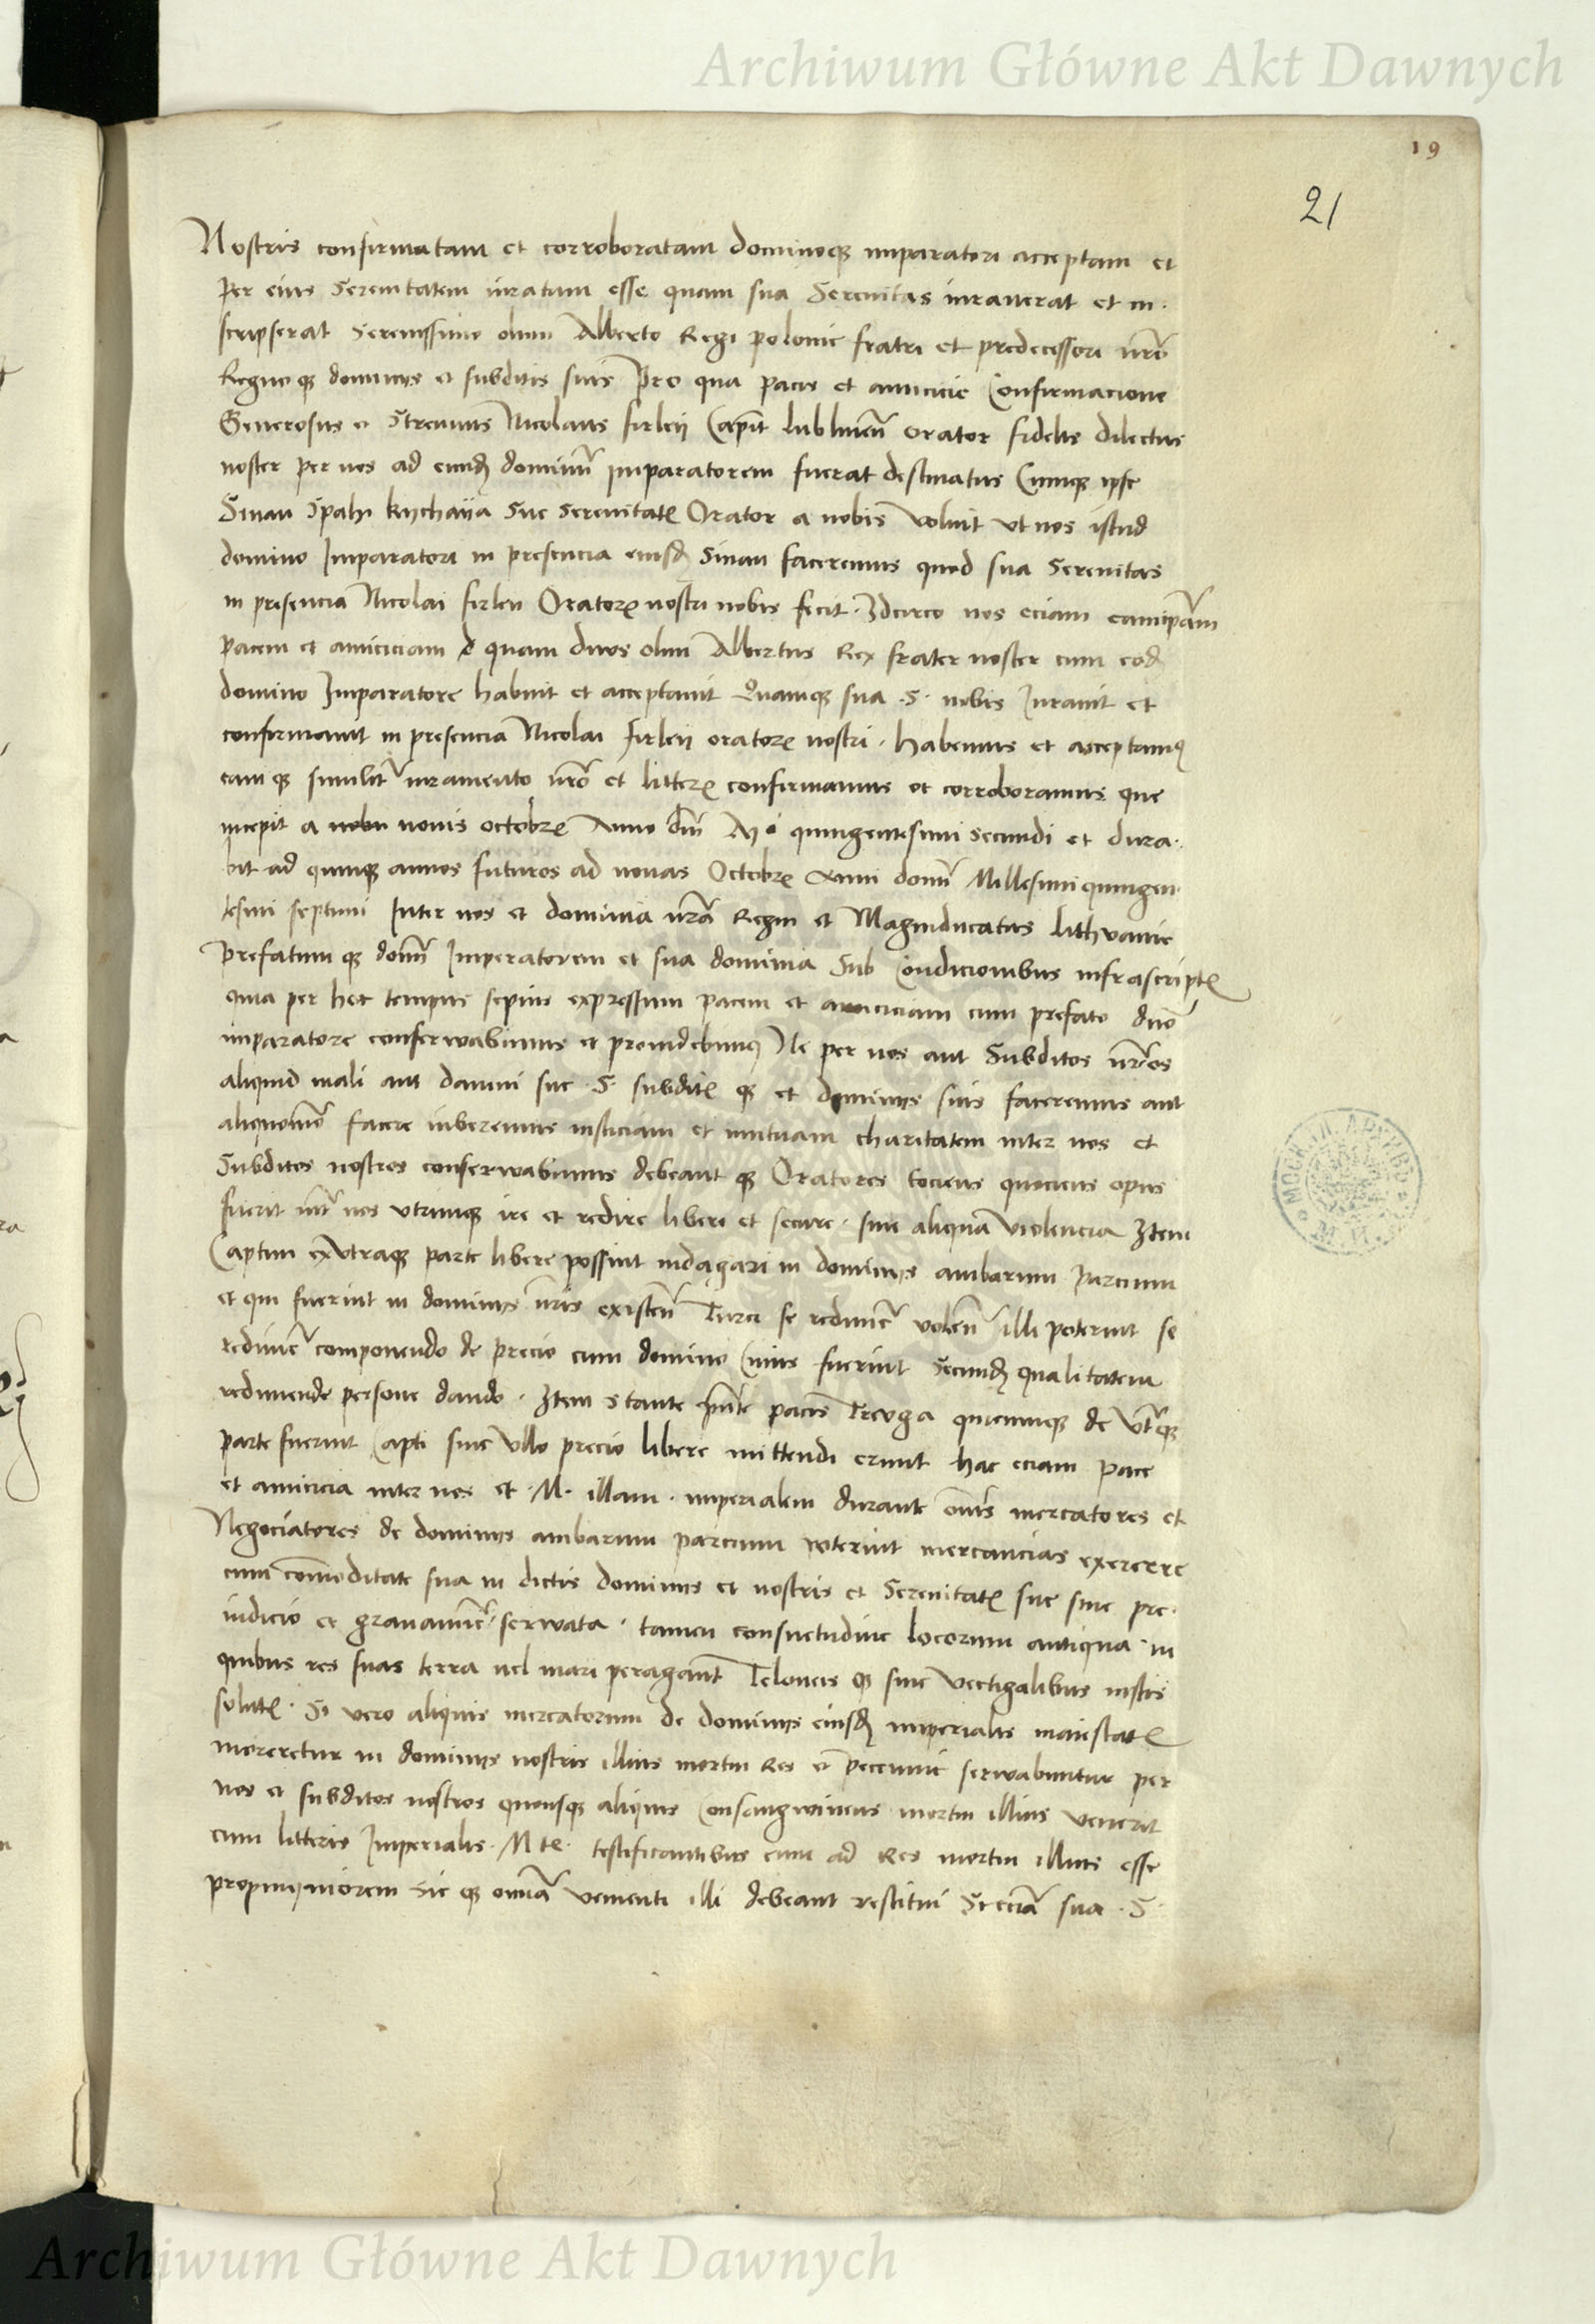 Archiwum Główne Akt Dawnych
19
21
Nostris confirmatam et corroboratam dominoq imparatori acceptam et
per eius Serenitatem iuratam esse quam sua Serenitas iuraverat et in.
scripserat Serenissimo olim Alberto Regi polonie fratri et predecessori nrō
Regnoq dominijs et subditis suis Pro qua pacis et amicicie Confirmacione
Generosus et Strenuus Nicolaus firleij Capit lublinen Orator fidelis dilectus
noster per nos ad eund dominū imparatorem fuerat destinatus Cumq ipse
Sinan Spahi kychaija Sue Serenitatę Orator a nobis voluit vt nos istud
domino Imparatori in presencia eiusd Sinan faceremus quod sua Serenitas
in presencia Nicolai firleii Oratorę nostri nobis fecit. Idcirco nos eciam eamipām
pacem et amiciciam quam divos olim Albertus Rex frater noster cum eod
domino Imparatore habuit et acceptavit Quamq sua .S. nobis Iuravit et
confirmavit in presencia Nicolai firleij oratorę nostri. habemus et acceptamus
eamq similit iuramento nrō et litterę confirmamus et corroboramus que
incepit a nonis octobrę Anno dm̄ quingentesimi secundi et dura.
bit ad quinq annos futuros ad nonas Octobrę Anni domī Millesimi quingen
tesimi septimi Inter nos et dominia nrā Regni et Magniducatus lithvanie
Prefatumq domī Imperatorem et sua dominia Sub Condicionibus infrascriptę
quia per hoc tempus sepius expressum pacem et amiciciam cum prefato dnō
imparatore conserwabimus et providebimus Ne per nos aut Subditos nrōs
aliquid mali aut damni sue .S. subditęq et dominijs suis faceremus aut
aliquomō facere iuberemus iusticiam et mutuam charitatem inter nos et
Subditos nostros conserwabimus debeantq Oratores tociens quociens opus
fuerit int nos vtrimq ire et redire libere et secure. sine aliqua violencia Item
Captivi exvtraq parte libere possint indagari in dominijs ambarum parcium
et qui fuerint in dominijs nris existen Turci se redime volen illi poterunt se
redime componendo de precio cum domino Cuius fuerint Secund qualitatem
redimende persone dando. Item stante pnte pacis Trevga quicumq de vtraq
parte fuerint Capti sine vllo precio libere mittendi erunt hac eciam pace
et amicicia inter nos et .M. illam. imperialem durante omēs mercatores et
Negociatores de dominijs ambarum parcium poterint mercancias exercere
cum comoditate sua in dictis dominijs et nostris et Serenitatę sue sine pre.
iudicio et gravamine. serwata. tamen consuetudine locorum antiqua. in
quibus res suas terra uel mari peragant Teloneisq sive vectigalibus iustis
solutę. Si vero aliquis mercatorum de dominijs eiusd imperialis maiestatę
moreretur in dominijs nostris illius mortui Res et pecunie serwabuntur per
nos et subditos nostros quousq aliquis Consangwineus mortui illius venerit
cum litteris Imperialis. Mte. testificantibus eum ad Res mortui illius esse
propinquiorem Sicq omnia venienti illi debeant restitui Si eciā sua .S.
Archiwum Główne Akt Dawnych